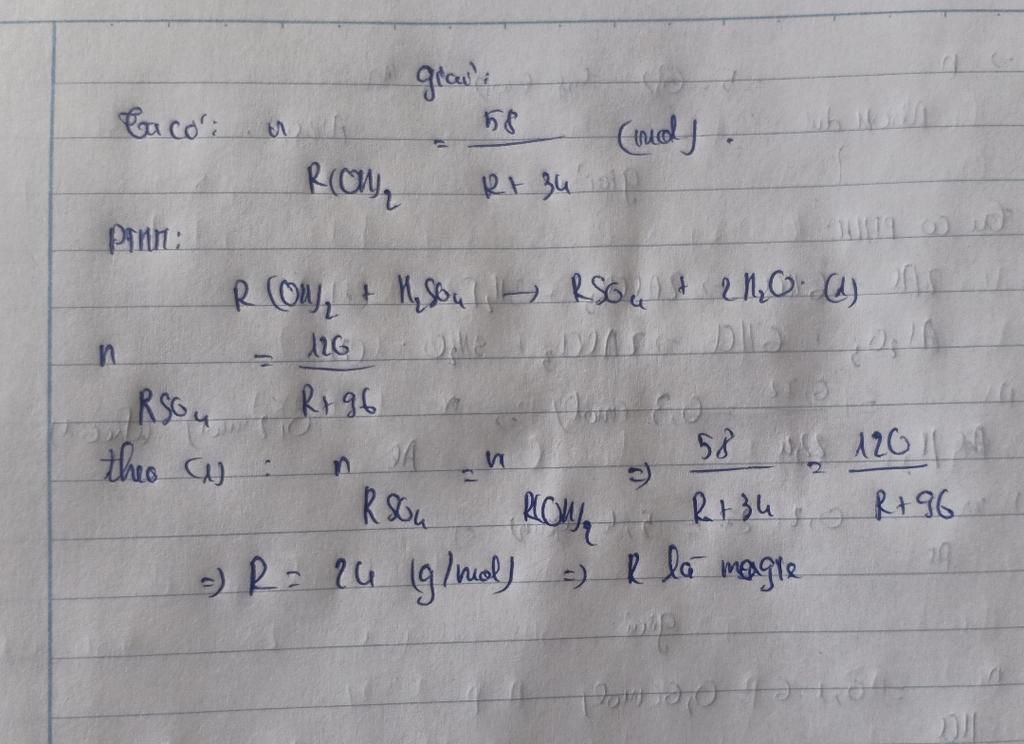 giải:
Ta có: n R(OH)₂ = 58 / R + 34 (mol).
PTHH:
R(OH)₂ + H₂SO₄ → RSO₄ + 2H₂O. (1)
n RSO₄ = 120 / R + 96
theo (1): n RSO₄ = n R(OH)₂ => 58 / R + 34 = 120 / R + 96
=> R = 24 (g/mol) => R là magie